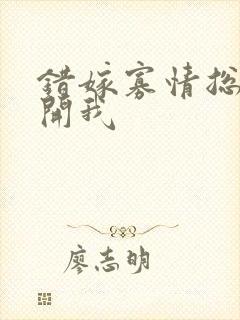 錯嫁寡情總
開我
廖志明